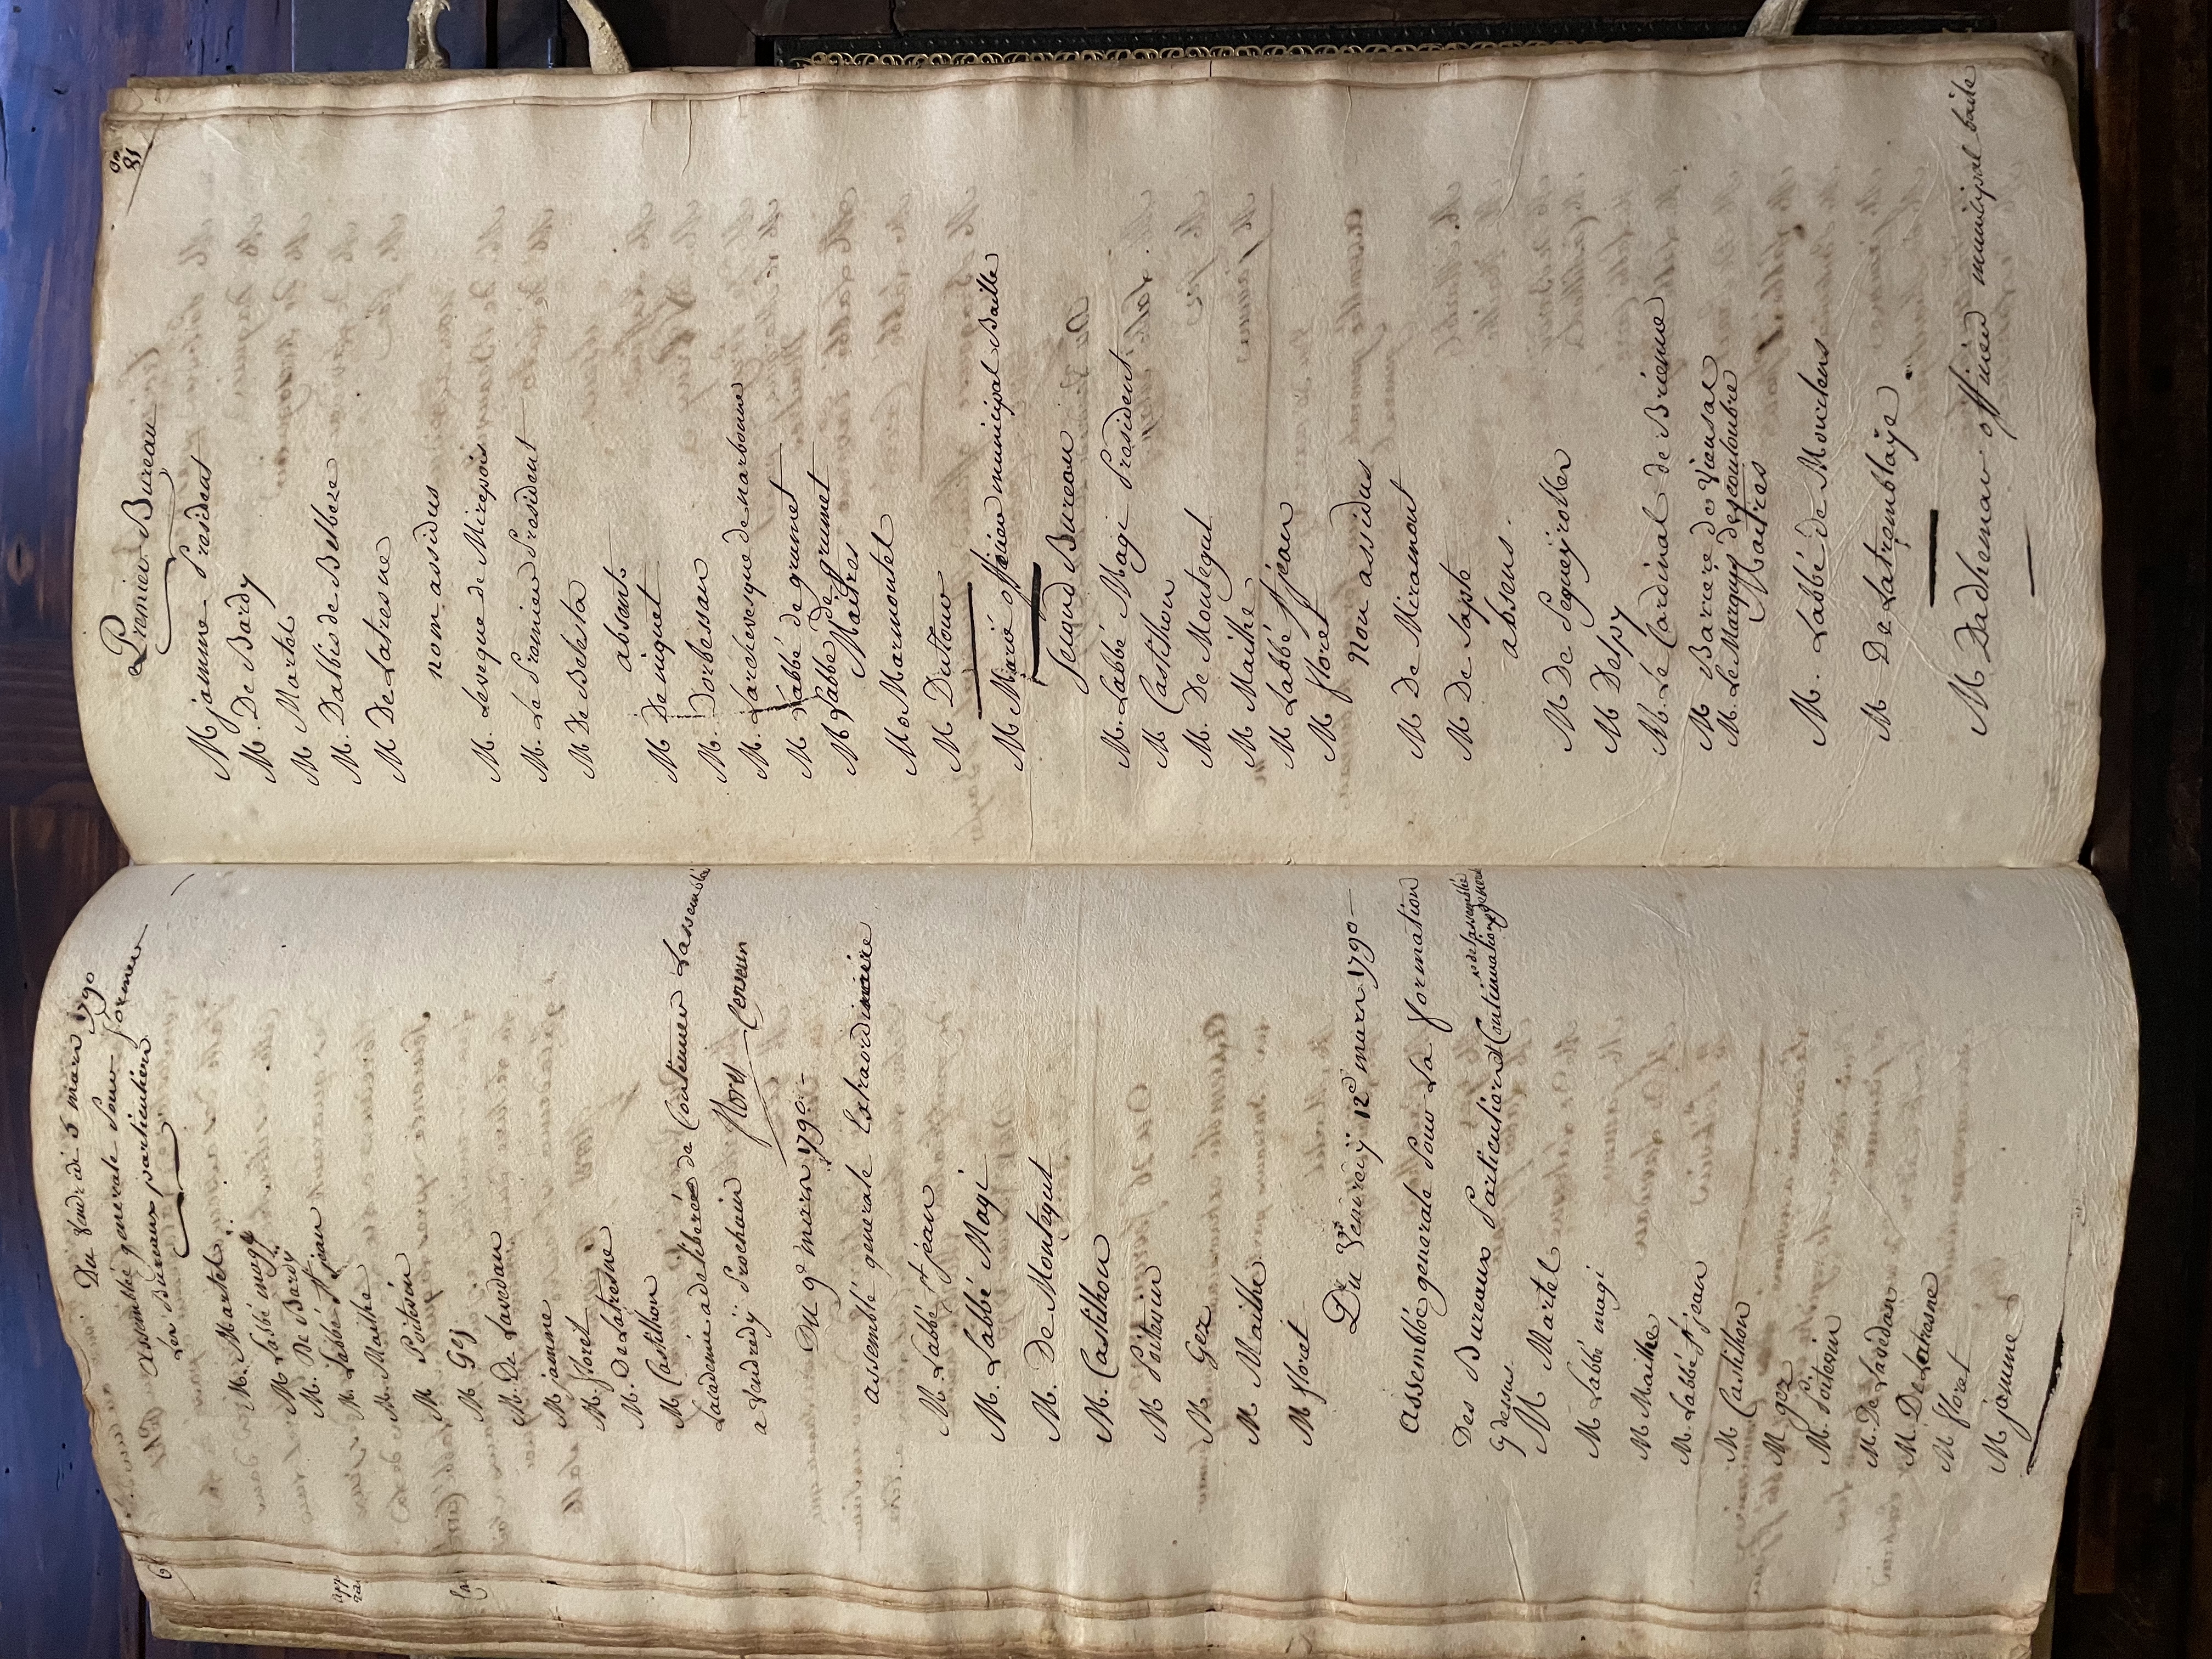 Du Vendredi 5 mars 1790
assemblée generale Pour former
Les Bureaux particuliers
M. Martel
M. Labbé magi
M. De Bardy
M. Labbé St jean
M. Maithe
M Poitevin
M Gez
M. De Lavedan
M jamme
M. floret
M. De Latresne
M Castilhon
Lacademie a deliberé de Continuer Lassemblée
a Vendredy Prochain
floret Censeur
Du 9e mars 1790
assemblé generale Extraordinaire
M. Labbé St jean
M. Labbé Magi
M. De Montegut
M. Castilhon
M Poitevin
M Gez
M Maithe
M floret
Du Vendredy 12e mars 1790
assemblée generale Pour La formation
Des Bureaux Particuliers et Continuation de lassemblée generale
cy dessus
M Martel
M Labbé magi
M Maithe
M. Labbé St jean
M Castilhon
M gez
M. Poitevin
M. De Lavedan
M. De Latresne
M floret
M jamme
81
Premier Bureau
M jamme President
M. De Bardy
M Martel
M. Dalbis de Belbeze
M De Latresne
nom assidus
M. Leveque de Mirepois
M. Le Premier President
M De Belesta
absents
M De niquet
M. Dorbessan
M. Larchevesque de narbonne
M Labbé de grumet
M Labbé de grumet
Maitres
M. Marmontel
M Dutour
M Marie officier municipal Baille
Segond Bureau
M. Labbé Magi President
M Castilhon
M. De Montegut
M Maithe
M Labbé St jean
M floret
non assidus
M De Miramont
M De Sapte
absens.
M De Segueyroller
M Delpy
M. Le Cardinal de Brienne
M Bariere de Vieusal
M. Le Marquis descouloubre
Maitres
M. Labbé de Mourlens
M De Latremblaye
M Dadhemar officier municipal baile